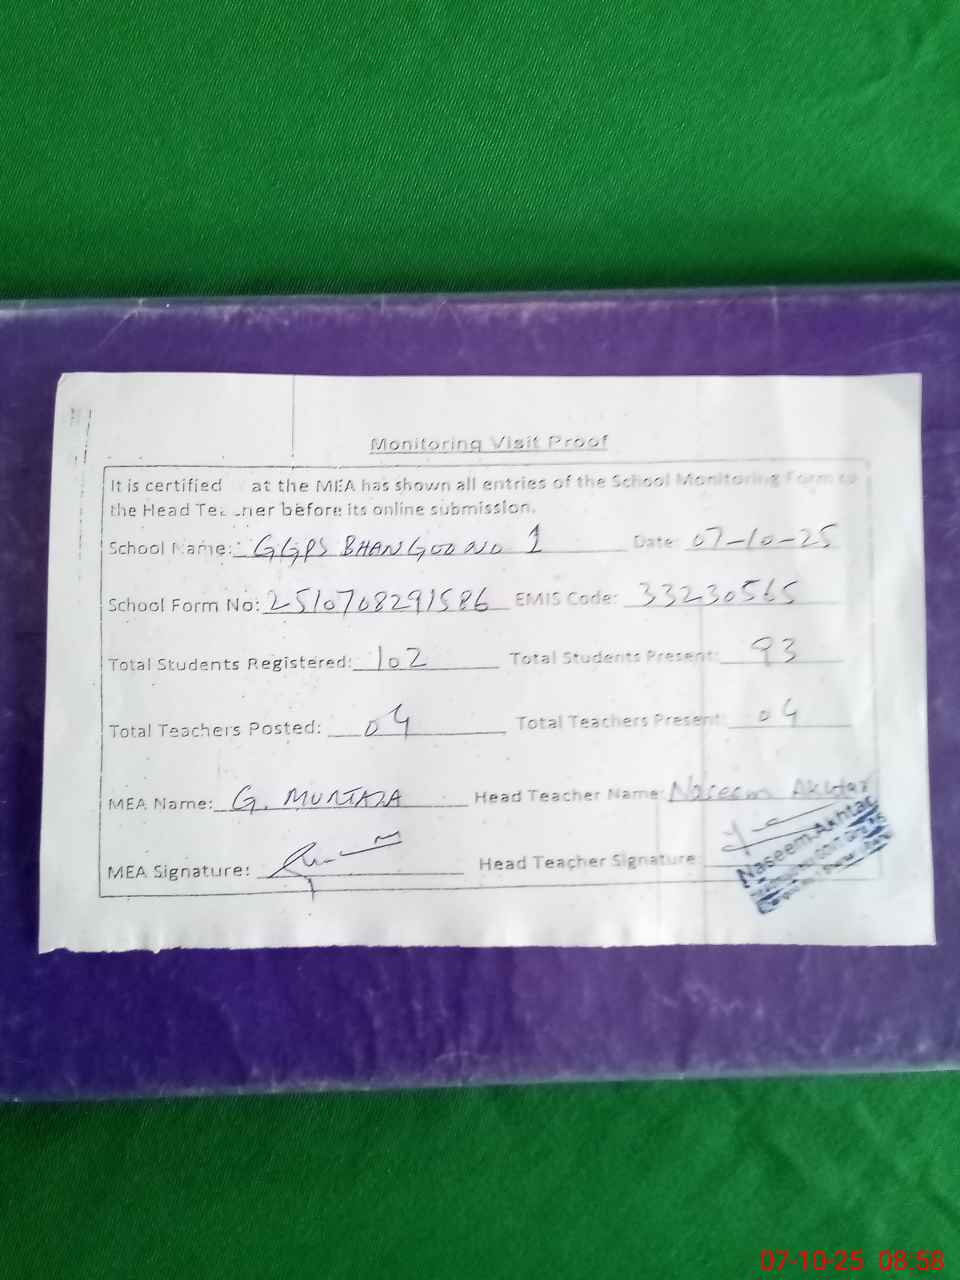 Monitoring Visit Proof
It is certified at the MEA has shown all entries of the School Monitoring Form to
the Head Teacher before its online submission.
School Name: GGPS BHANGOO NO 1 Date: 07-10-25
School Form No: 2510708291586 EMIS Code: 33230565
Total Students Registered: 102 Total Students Present: 93
Total Teachers Posted: 04 Total Teachers Present: 04
MEA Name: G. MURTAZA Head Teacher Name: Naseem Akhtar
MEA Signature: Head Teacher Signature:
Naseem Akhtar
07-10-25 08:58